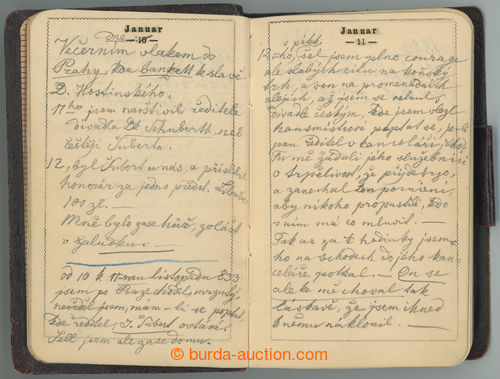 Januar
10
dne
Večerním vlakem do
Prahy, kde banket k slávě
D. Hostinského.
17ho jsem navštívil ředitele
divadla Dr. Schuberth, neb
Šubrta.
12, byl Šubert u nás, a přislíbil
honorář za jedno předst.
100 zl. —
Mně bylo zase hůř, zvlášt
v žaludku. —
od 10 k 11. mu listopadu 833
jsem po Praze chodil, mrzutý,
nevěděl jsem, mám-li se poptat,
kde ředitel, F. Šubert ostává.
Šell jsem ale zase domu.
Januar
11
v pátek
12ho, šel jsem plno courage
ale slabých citu na koňský
trh, a ven na promenádních
alejích, až jsem se octnul
divadle českým, kde jsem vlezl
poptat se, je-li
pan ředitel v kanceláři, ihed
mě žádali jeho služebníci
o trpělivost, že přijde brzo,
a zanechal jim poručení,
aby nikoho propustili, kdo
s ním má co mluvit.
Tak as za ½ hodinky jsem
ho na schodech do jeho kan-
celáře potkal. — On se
ale ke mě choval tak
láskavě, že jsem ihned
k němu náklonil. —
© burda-auction.com